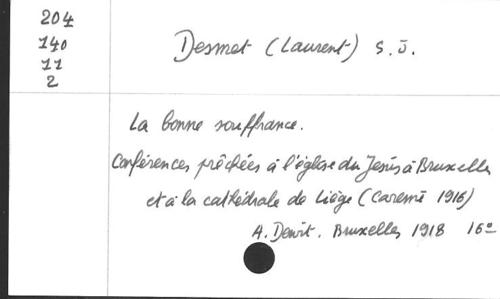 204
140
11
2
Desmet (Laurent) S.J.
La bonne souffrance.
Conférences prêchées à l'église du Jesùs à Bruxelles
et à la cathédrale de Liège (Caremê 1916)
A. Dewit. Bruxelles 1918 16º